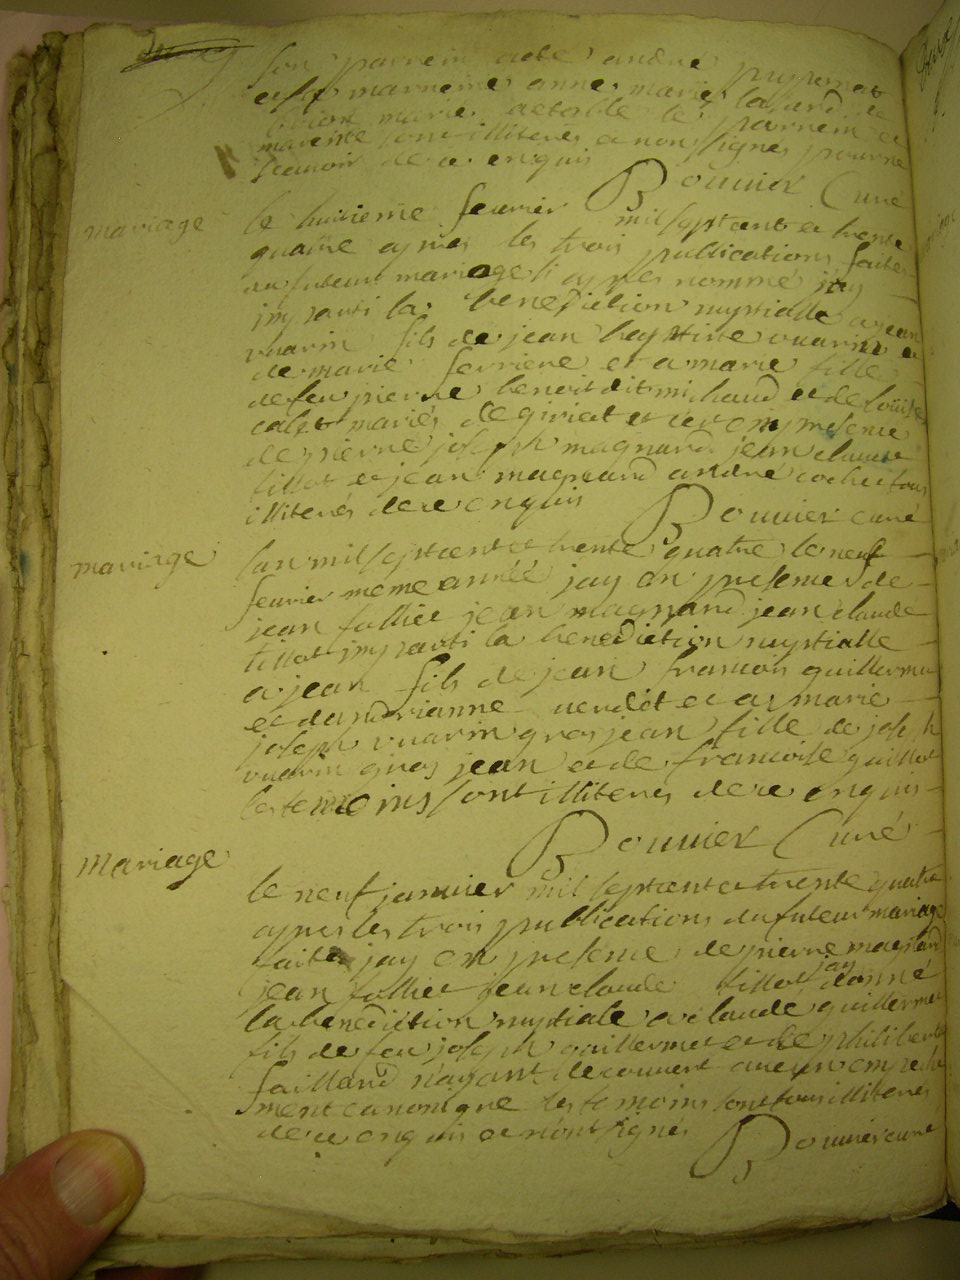 son parrein a été andré
et sa marreine anne marie
marie
sont illiterés et non signés pour ne
scavoir de ce enquis
Bouvier Curé
mariage
le huitieme fevrier mil sept cent et trente
quatre apres les trois publications faites
du futeur mariage si apres nommé jay
imparti la benediction nuptialle a jean
vuarin fils de jean baptiste vuarin et
de marie ferriere et a marie fille
de feu pierre benoit dit michaud et de Louise
mariés de et ce en presence
de pierre joseph magnard jean claude
tillot et jean magnard andré tous
illiterés de ce enquis
Bouvier curé
mariage
lan mil sept cent et trente quatre le neuf
fevrier meme année jay en presence de
jean follier jean magnard jean claude
tillot imparti la benediction nuptialle
a jean fils de jean francois guillermet
et dandrianne verdet et a marie
joseph vuarin gros jean fille de joseph
vuarin gros jean et de francoise guillot
les temoins sont illiterés de ce enquis
Bouvier Curé
Mariage
le neuf janvier mil sept cent et trente quatre
apres les trois publications du futeur mariage
faites jay en presence de pierre magnard
jean follier jean claude tillot jay donné
la benediction nuptiale a claude guillermet
fils de feu joseph guillermet et de philiberte
faillard nayant decouvert aucun empeche
ment canonique les temoins sont tous illiterés
de ce enquis et nont signés
Bouvier curé